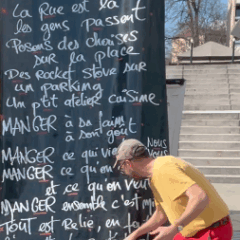 La Rue est là
les gens Passent.
Posons des chaises
sur la place
Des Rocket stove sur
un parking
Un p'tit atelier cuisine.
MANGER à sa faim
à son goût
MANGER ce qui vi
Nous
MANGER ce qu'on
vous
et ce qu'on veut
MANGER ensemble c'est
Tout est Relié, en